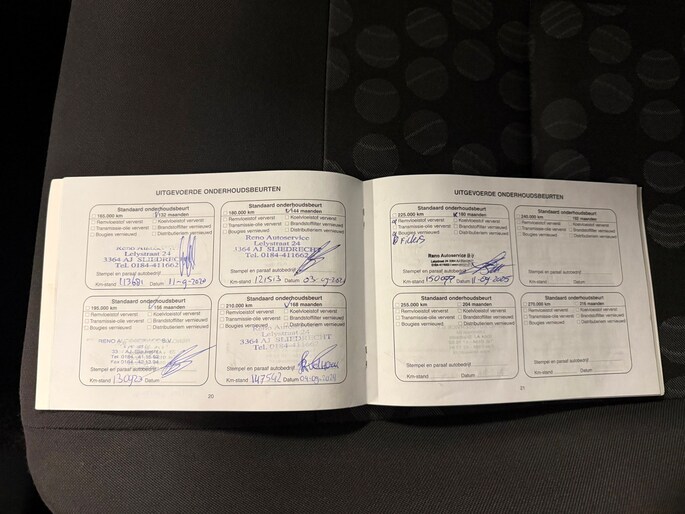 UITGEVOERDE ONDERHOUDSBEURTEN
Standaard onderhoudsbeurt
165.000 km 132 maanden
Remvloeistof ververst Koelvloeistof ververst
Transmissie-olie ververst Brandstoffilter vernieuwd
Bougies vernieuwd Distributieriem vernieuwd
Lelystraat 24
3364 AJ SLIEDRECHT
Tel. 0184-411662
Stempel en paraaf autobedrijf
Km-stand 113681 Datum
Standaard onderhoudsbeurt
180.000 km 144 maanden
Remvloeistof ververst Koelvloeistof ververst
Transmissie-olie ververst Brandstoffilter vernieuwd
Bougies vernieuwd Distributieriem vernieuwd
Reno Autoservice
Lelystraat 24
3364 AJ SLIEDRECHT
Tel. 0184-411662
Stempel en paraaf autobedrijf
Km-stand 121513 Datum
Standaard onderhoudsbeurt
195.000 km 156 maanden
Remvloeistof ververst Koelvloeistof ververst
Transmissie-olie ververst Brandstoffilter vernieuwd
Bougies vernieuwd Distributieriem vernieuwd
Stempel en paraaf autobedrijf
Km-stand Datum
Standaard onderhoudsbeurt
210.000 km 168 maanden
Remvloeistof ververst Koelvloeistof ververst
Transmissie-olie ververst Brandstoffilter vernieuwd
Bougies vernieuwd Distributieriem vernieuwd
Lelystraat 24
3364 AJ SLIEDRECHT
Tel. 0184-411662
Stempel en paraaf autobedrijf
Km-stand 147542 Datum 04-09-2024
20
UITGEVOERDE ONDERHOUDSBEURTEN
Standaard onderhoudsbeurt
225.000 km 180 maanden
Remvloeistof ververst Koelvloeistof ververst
Transmissie-olie ververst Brandstoffilter vernieuwd
Bougies vernieuwd Distributieriem vernieuwd
Filters
Reno Autoservice B.V.
Stempel en paraaf autobedrijf
Km-stand 150099 Datum 11-09-2025
Standaard onderhoudsbeurt
240.000 km 192 maanden
Remvloeistof ververst Koelvloeistof ververst
Transmissie-olie ververst Brandstoffilter vernieuwd
Bougies vernieuwd Distributieriem vernieuwd
Stempel en paraaf autobedrijf
Km-stand Datum
Standaard onderhoudsbeurt
255.000 km 204 maanden
Remvloeistof ververst Koelvloeistof ververst
Transmissie-olie ververst Brandstoffilter vernieuwd
Bougies vernieuwd Distributieriem vernieuwd
Stempel en paraaf autobedrijf
Km-stand Datum
Standaard onderhoudsbeurt
270.000 km 216 maanden
Remvloeistof ververst Koelvloeistof ververst
Transmissie-olie ververst Brandstoffilter vernieuwd
Bougies vernieuwd Distributieriem vernieuwd
Stempel en paraaf autobedrijf
Km-stand Datum
21